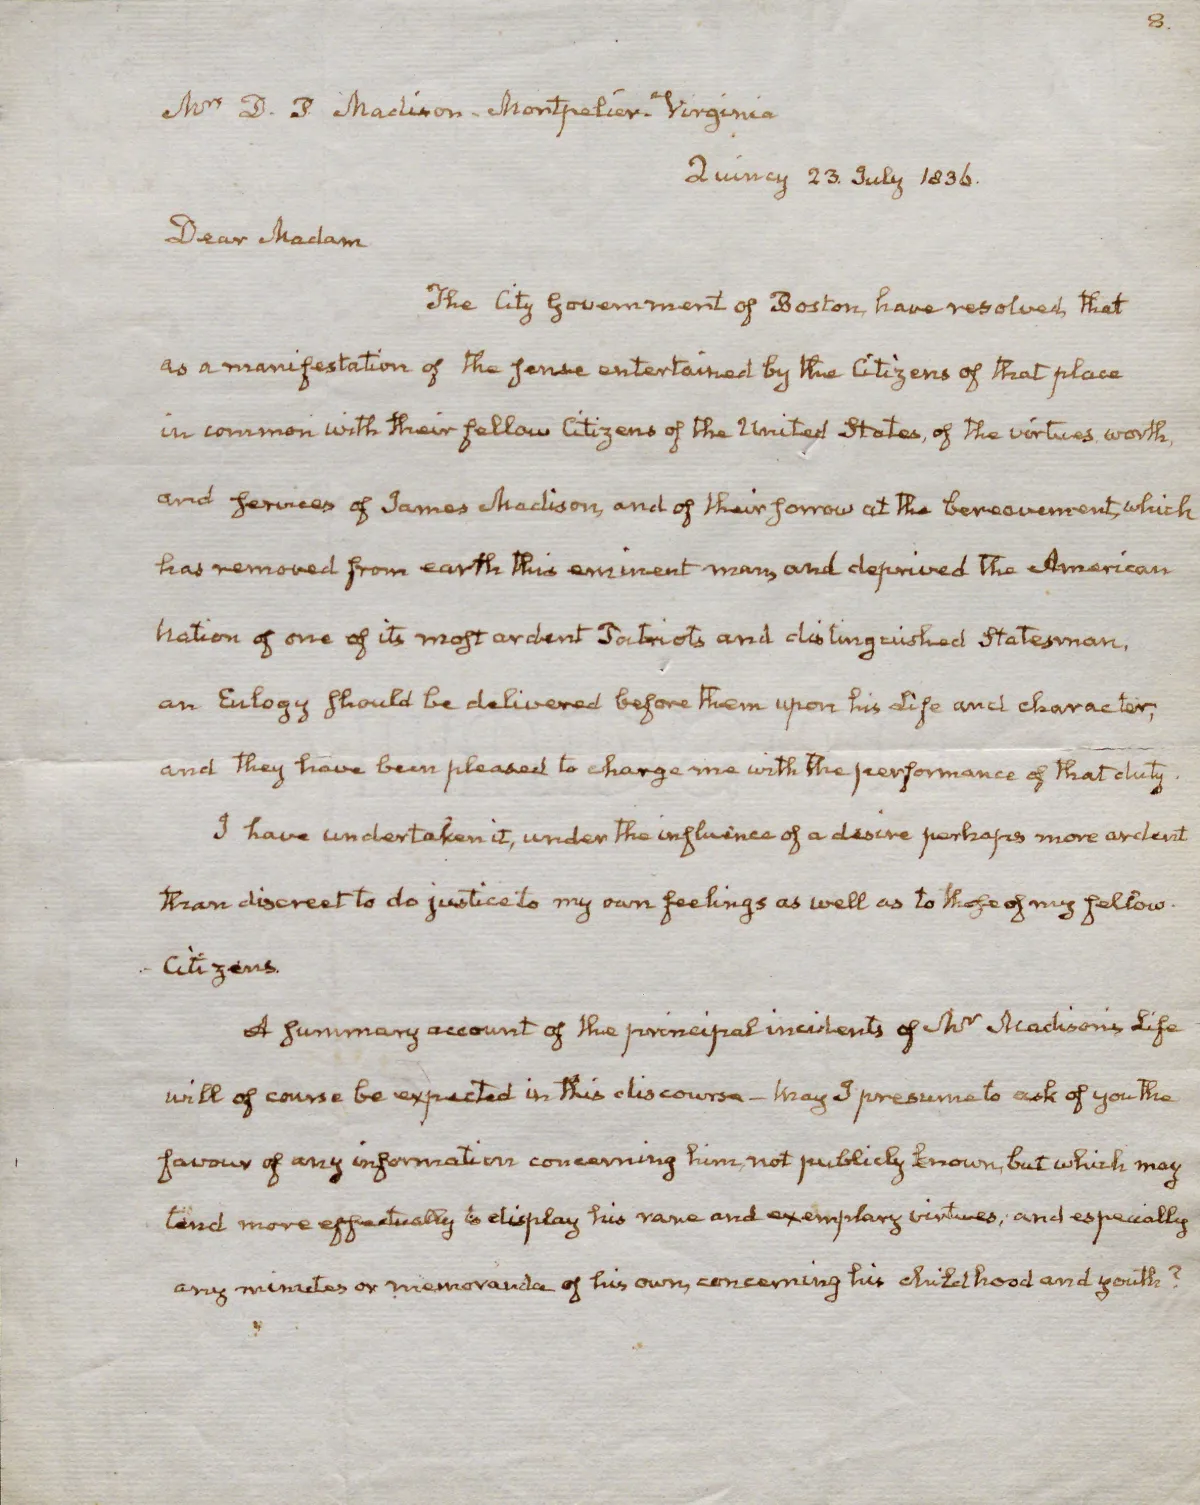 8.
Mrs D. P. Madison - Montpelier - Virginia
Quincy 23. July 1836.
Dear Madam
The City Government of Boston, have resolved, that
as a manifestation of the sense entertained by the Citizens of that place
in common with their fellow Citizens of the United States, of the virtues, worth,
and services of James Madison, and of their sorrow at the bereavement, which
has removed from earth this eminent man, and deprived the American
Nation of one of its most ardent Patriots and distinguished Statesman,
an Eulogy should be delivered before them upon his Life and character,
and they have been pleased to charge me with the performance of that duty.
I have undertaken it, under the influence of a desire perhaps more ardent
than discreet to do justice to my own feelings as well as to those of my fellow-
-Citizens.
A summary account of the principal incidents of Mr Madison's Life
will of course be expected in this discourse — may I presume to ask of you the
favour of any information concerning him, not publicly known, but which may
tend more effectually to display his rare and exemplary virtues, and especially
any minutes or memoranda of his own, concerning his childhood and youth?